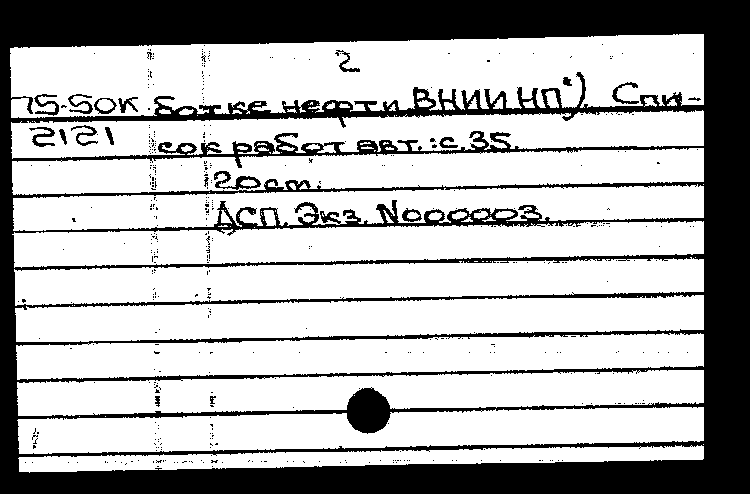 2
75-50К ботке нефти ВНИИ НП") Спи-
2121 сок работ авт.: с. 35.
20см.
ДСП. Экз. N000003.